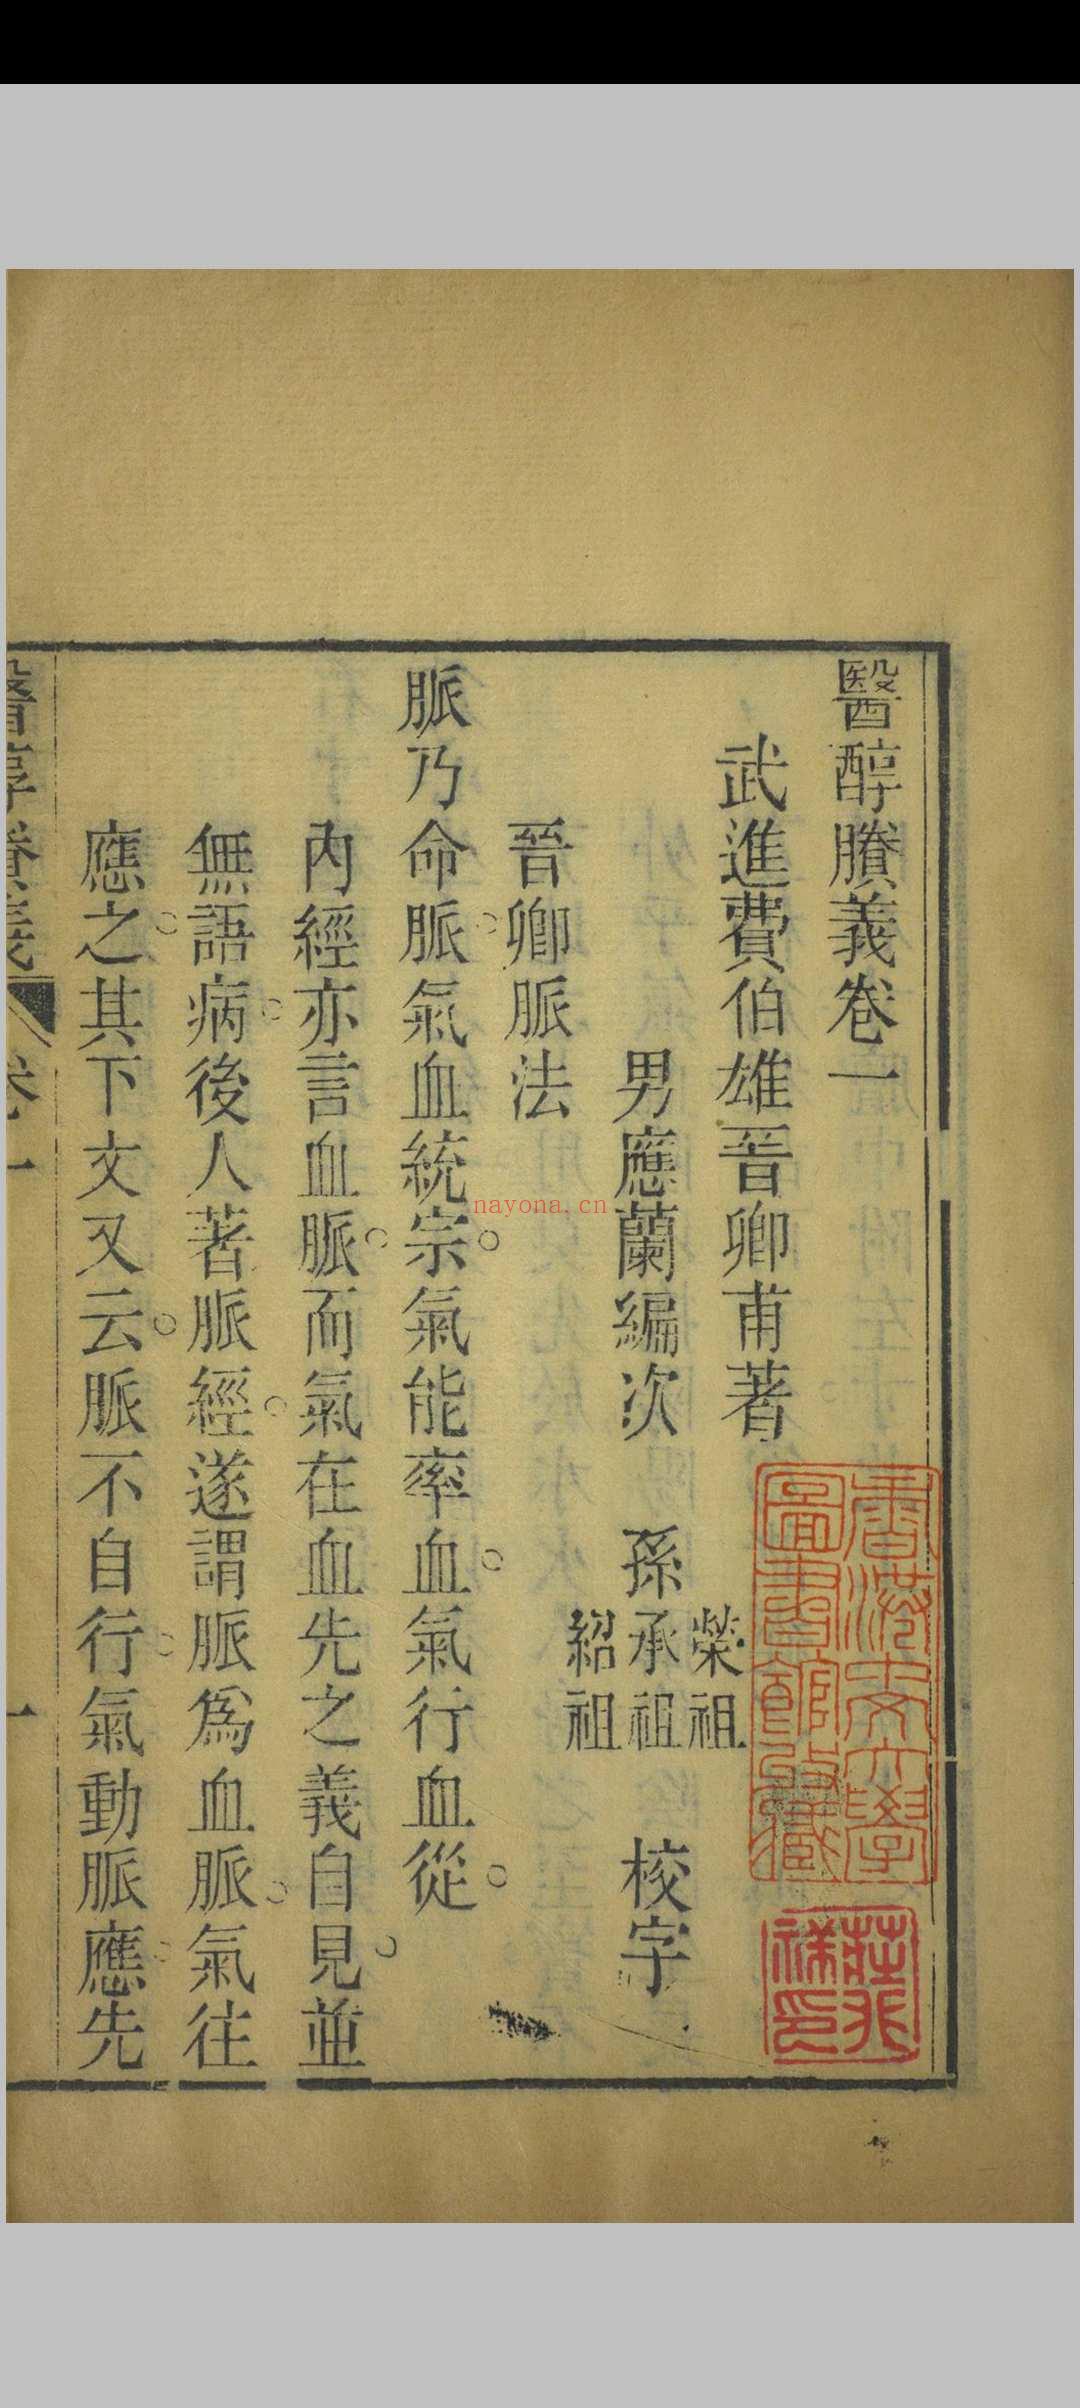 醫醇賸義卷一
武進費伯雄晉卿甫著
男應蘭編次 孫 榮祖 承祖 紹祖 校字
晉卿脈法
脈乃命脈氣血統宗氣能率血氣行血從
內經亦言血脈而氣在血先之義自見並
無語病後人著脈經遂謂脈爲血脈氣往
應之其下文又云脈不自行氣動脈應先
卷一
一
香港中文大學
圖書館藏
nayona.cn